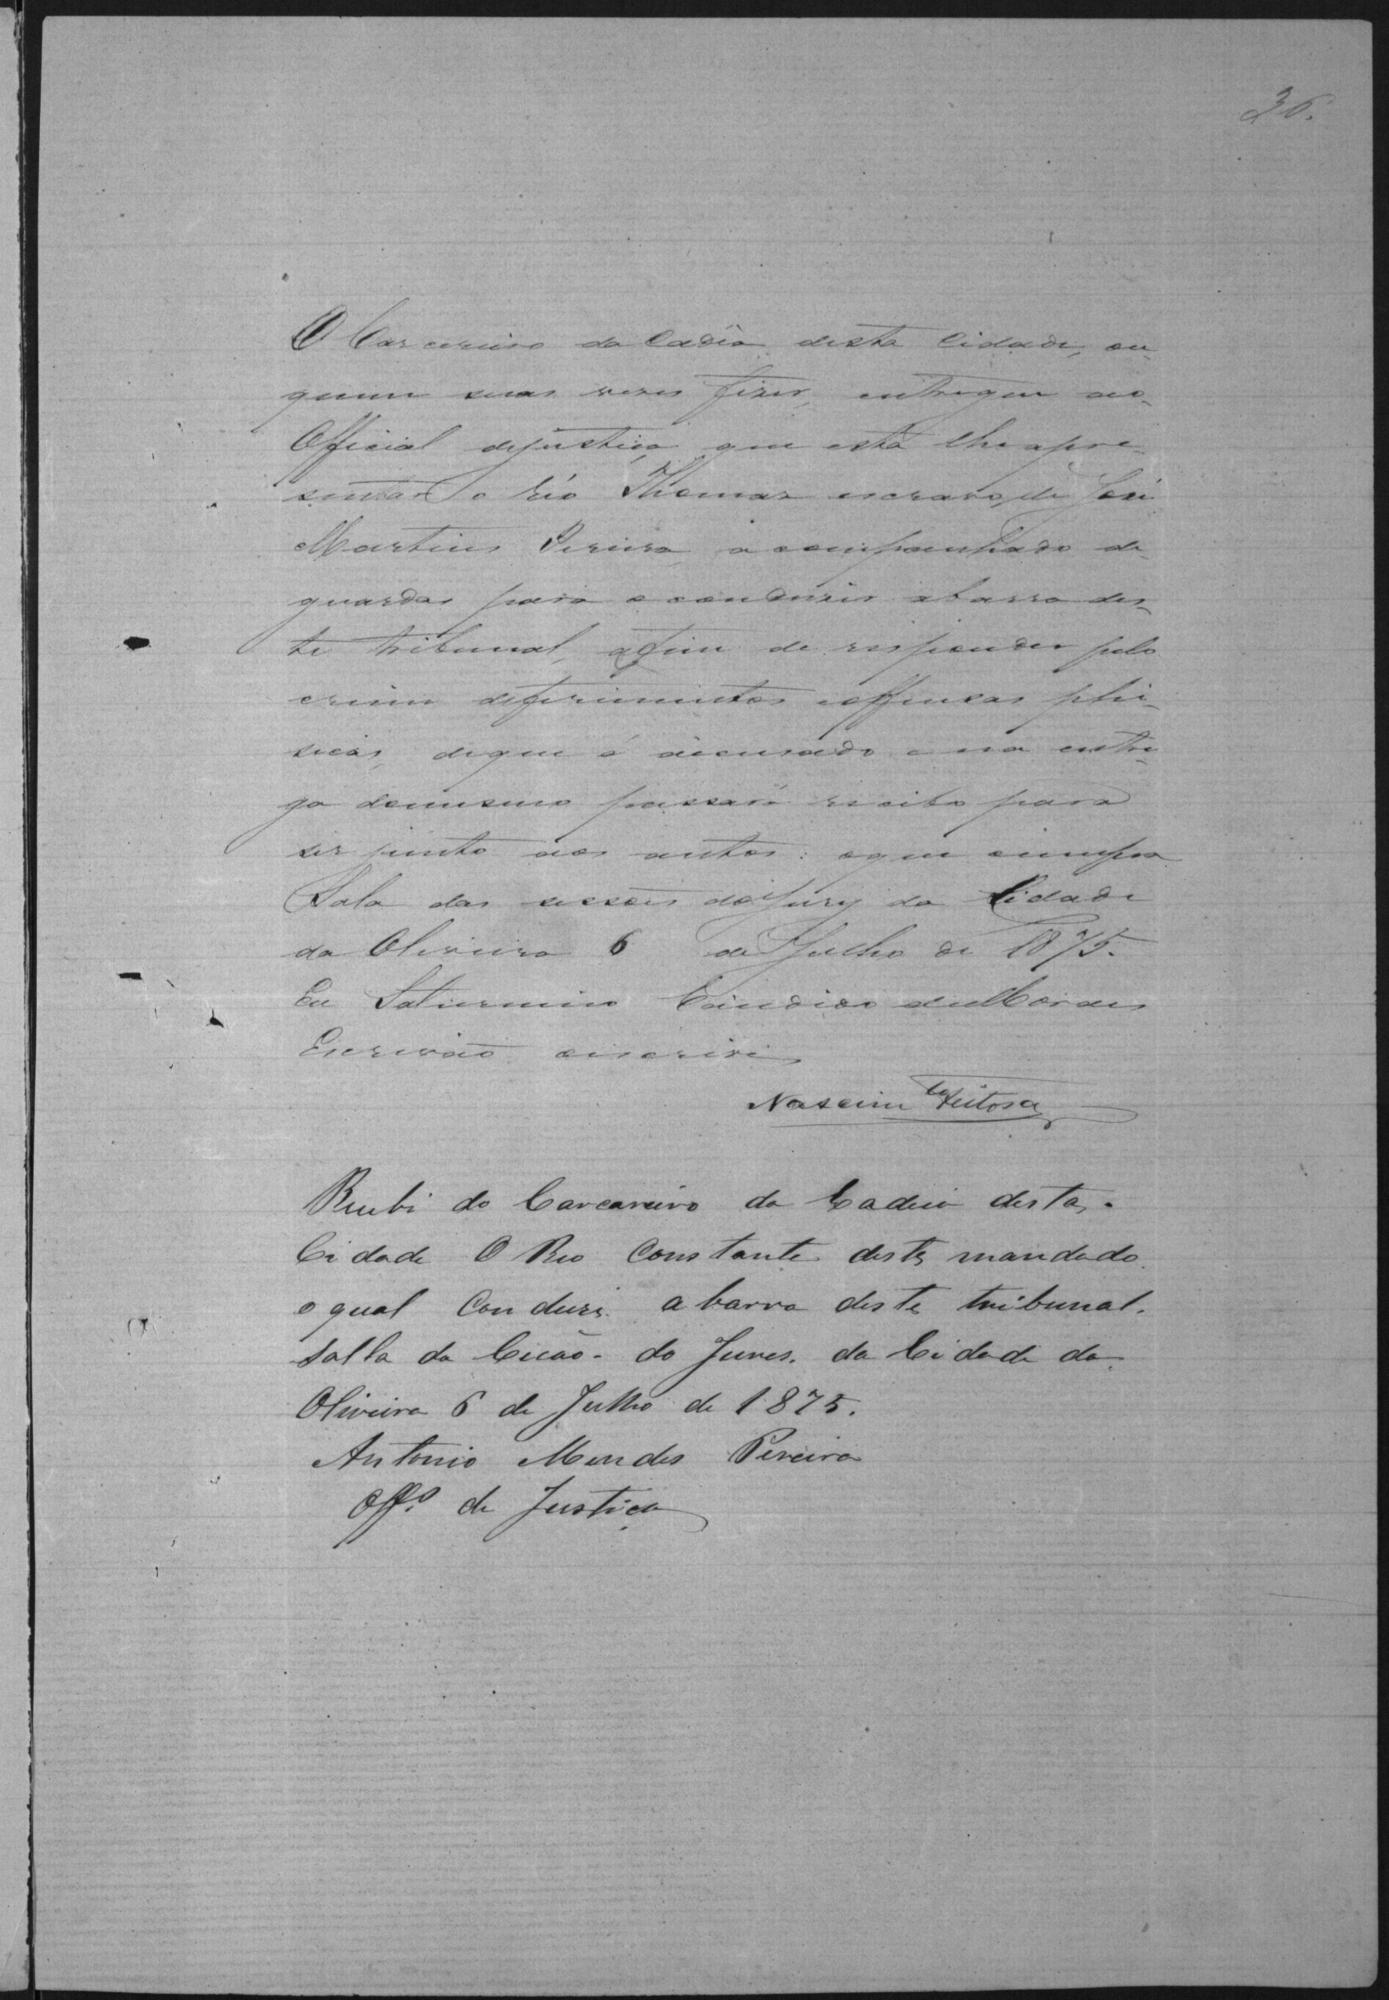 36.
O Carcereiro da Cadêa desta Cidade, ou
quem suas vezes fizer, entregue ao
Official dejustiça, que esta lhe apre-
sentar o réo Thomaz escravo, de José
Martins Pereira, acompanhado de
guardas para o conduzir a barra des-
te tribunal, afim de responder pelo
crime deferimentos e offensas phi-
sicas, deque é accusado e na entre
ga domesmo passará recibo para
ser junto aos autos: oque cumpra
Sala das sessões do Jury da Cidade
da Oliveira 6 de Julho de 1875.
Eu Saturnino Candido de Moraes
Escrivão oescrevi
Nascim to Feitosa
Recibi do Carcareiro da Cadeia desta
Cidade O Reo Constante deste mandado
o qual Conduzi a barra deste tribunal.
Salla da do Jures. da Cidade da
Oliveira 6 de Julho de 1875.
Antonio Mendes Pereira
Off.o de Justiça